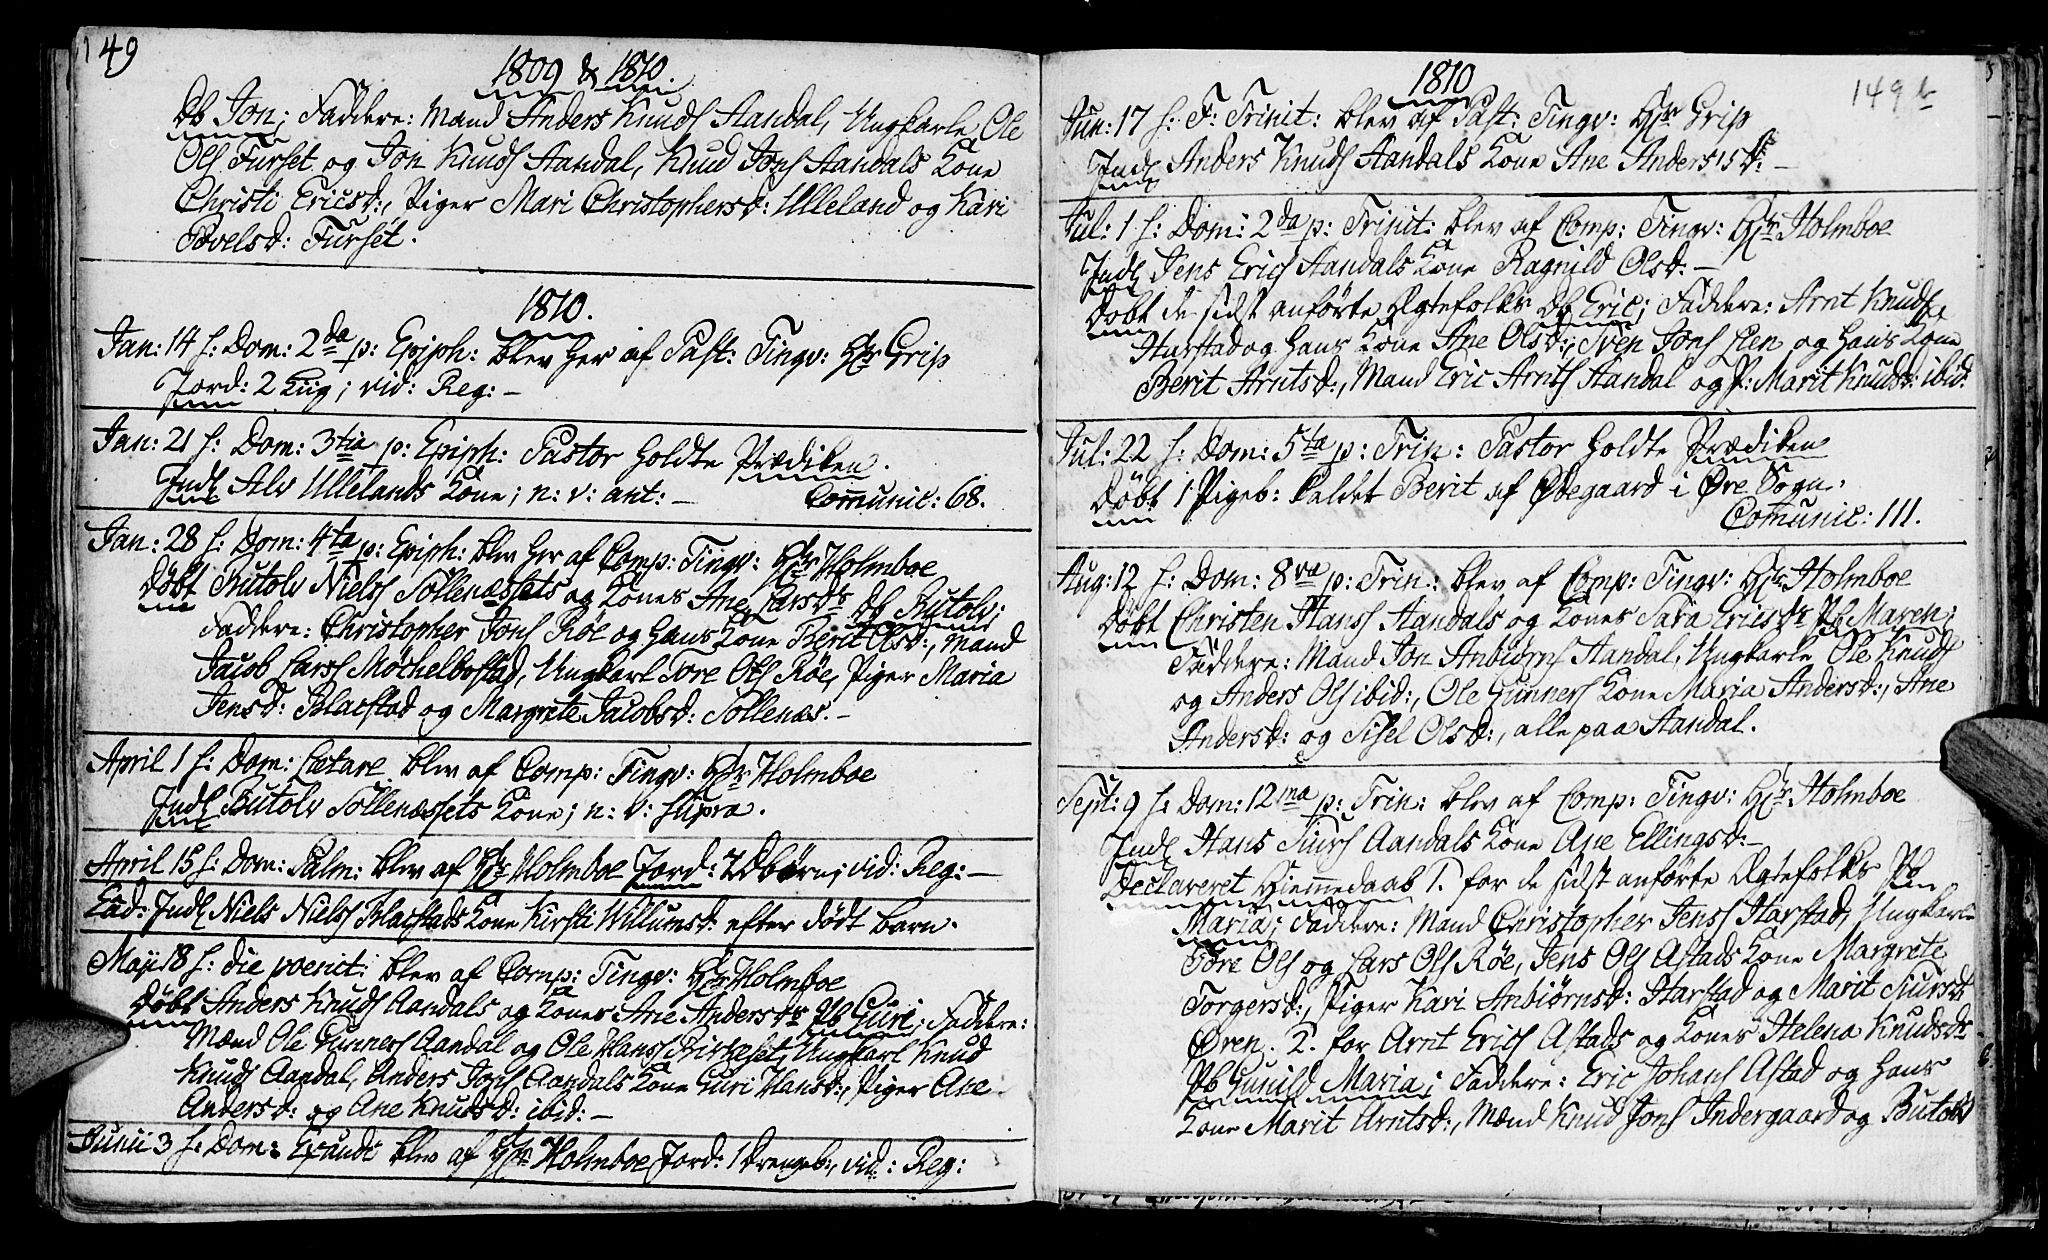 149
1809 & 1810.
Db Jon; Faddere: Mand Anders Knuds Aandal, Ungkarle Ole
Ols Furset og Jon Knuds Aandal, Knud Jons Aandals Kone
Christi Ericsd:, Piger Mari Christophersd: Ulleland og Kari
Povelsd: Furset.
1810.
Jan: 14 h: Dom: 2da p: Epiph: blev her af Past: Tingv: Hr Grip
Jord: 2 Liig; vid: Reg: –
Jan: 21 h: Dom: 3tia p: Epiph: Pastor holdte Prædiken.
Indl Alv Ullelands Kone; n: v: ant: – Comunic: 68.
Jan: 28 h: Dom: 4ta p: Epiph: blev her af Comp: Tingv: Hr Holmboe
Döbt Butolv Niels Söllenæssets og Kones Ane Larsdr Db Butolv;
Faddere: Christopher Jons Röe og hans Kone Berit Olsd:, Mand
Jacob Lars Möchelbostad, Ungkarl Tore Ols Röe, Piger Maria
Jensd: Blacstad og Margrete Jacobsd: Söllenæs. –
April 1 h: Dom: Lætare blev af Comp: Tingv: Hr Holmboe
Indl Butolv Söllenæssets Kone; n: v: supra.
April 15 h: Dom: Palm: blev af Hr Holmboe Jord: 2 Dbörn; vid: Reg: –
Ead: Indl Niels Niels Blacstads Kone Kirsti Willumsd: efter dödt barn.
Maji 18 h: die poenit: blev af Comp: Tingv: Hr Holmboe
Döbt Anders Knuds Aandals og Kones Ane Andersdr Pb Guri; Faddere:
Mænd Ole Gunners Aandal og Ole Hans Birkeset, Ungkarl Knud
Knuds Aandal, Anders Jons Aandals Kone Guri Hansd:, Piger Ane
Andersd: og Ane Knudsd: ibid: –
Junii 3 h: Dom: Exaudi blev af Hr Holmboe Jord: 1 Drengeb:, vid: Reg:
1810
149 b
Jun: 17 h: F: Trinit: blev af Past: Tingv: Hr Grip
Indl Anders Knuds Aandals Kone Ane Andersd: –
Jul: 1 h: Dom: 2da p: Trinit: blev af Comp: Tingv: Hr Holmboe
Indl Jens Erics Aandals Kone Ragnild Olsd: –
Döbt de sidst anförte Ægtefolks Db Eric; Faddere: Arnt Knuds
Harstad og hans Kone Ane Olsd:, Sven Jons Lien og hans Kone
Berit Arntsd:, Mand Eric Arnts Aandal og P: Marit Knudsd: ibid:
Jul: 22 h: Dom: 5ta p: Trin: Pastor holdte Prædiken
Döbt 1 Pigeb: kaldet Berit af Ødegaard i Øre Sogn.
Comunic: 111.
Aug: 12 h: Dom: 8va p: Trin: blev af Comp: Tingv: Hr Holmboe
Döbt Christen Hans Aandals og Kones Sara Ericsdr Pb Maren;
Faddere: Mand Jon Anbiörns Aandal, Ungkarle Ole Knuds
og Anders Ols ibid:, Ole Gunners Kone Maria Andersd:, Ane
Andersd: og Sisel Olsd:, alle paa Aandal.
Sept: 9 h: Dom: 12ma p: Trin: blev af Comp: Tingv: Hr Holmboe
Indl Hans Siurs Aandals Kone Ane Ellingsd: –
Declareret Hiemmedaab 1. for de sidst anförte Ægtefolks Pb
Maria; Faddere: Mand Christopher Jens Harstad, Ungkarle
Tore Ols og Lars Ols Röe, Jens Ols Astads Kone Margrete
Torgersd:, Piger Kari Anbiörnsd: Harstad og Marit Siursdr
Øren. 2. for Arnt Erics Astads og Kones Helena Knudsdr
Pb Gunild Maria; Faddere: Eric Johans Astad og hans
Kone Marit Arntsd:, Mænd Knud Jons Indergaard og Butolv